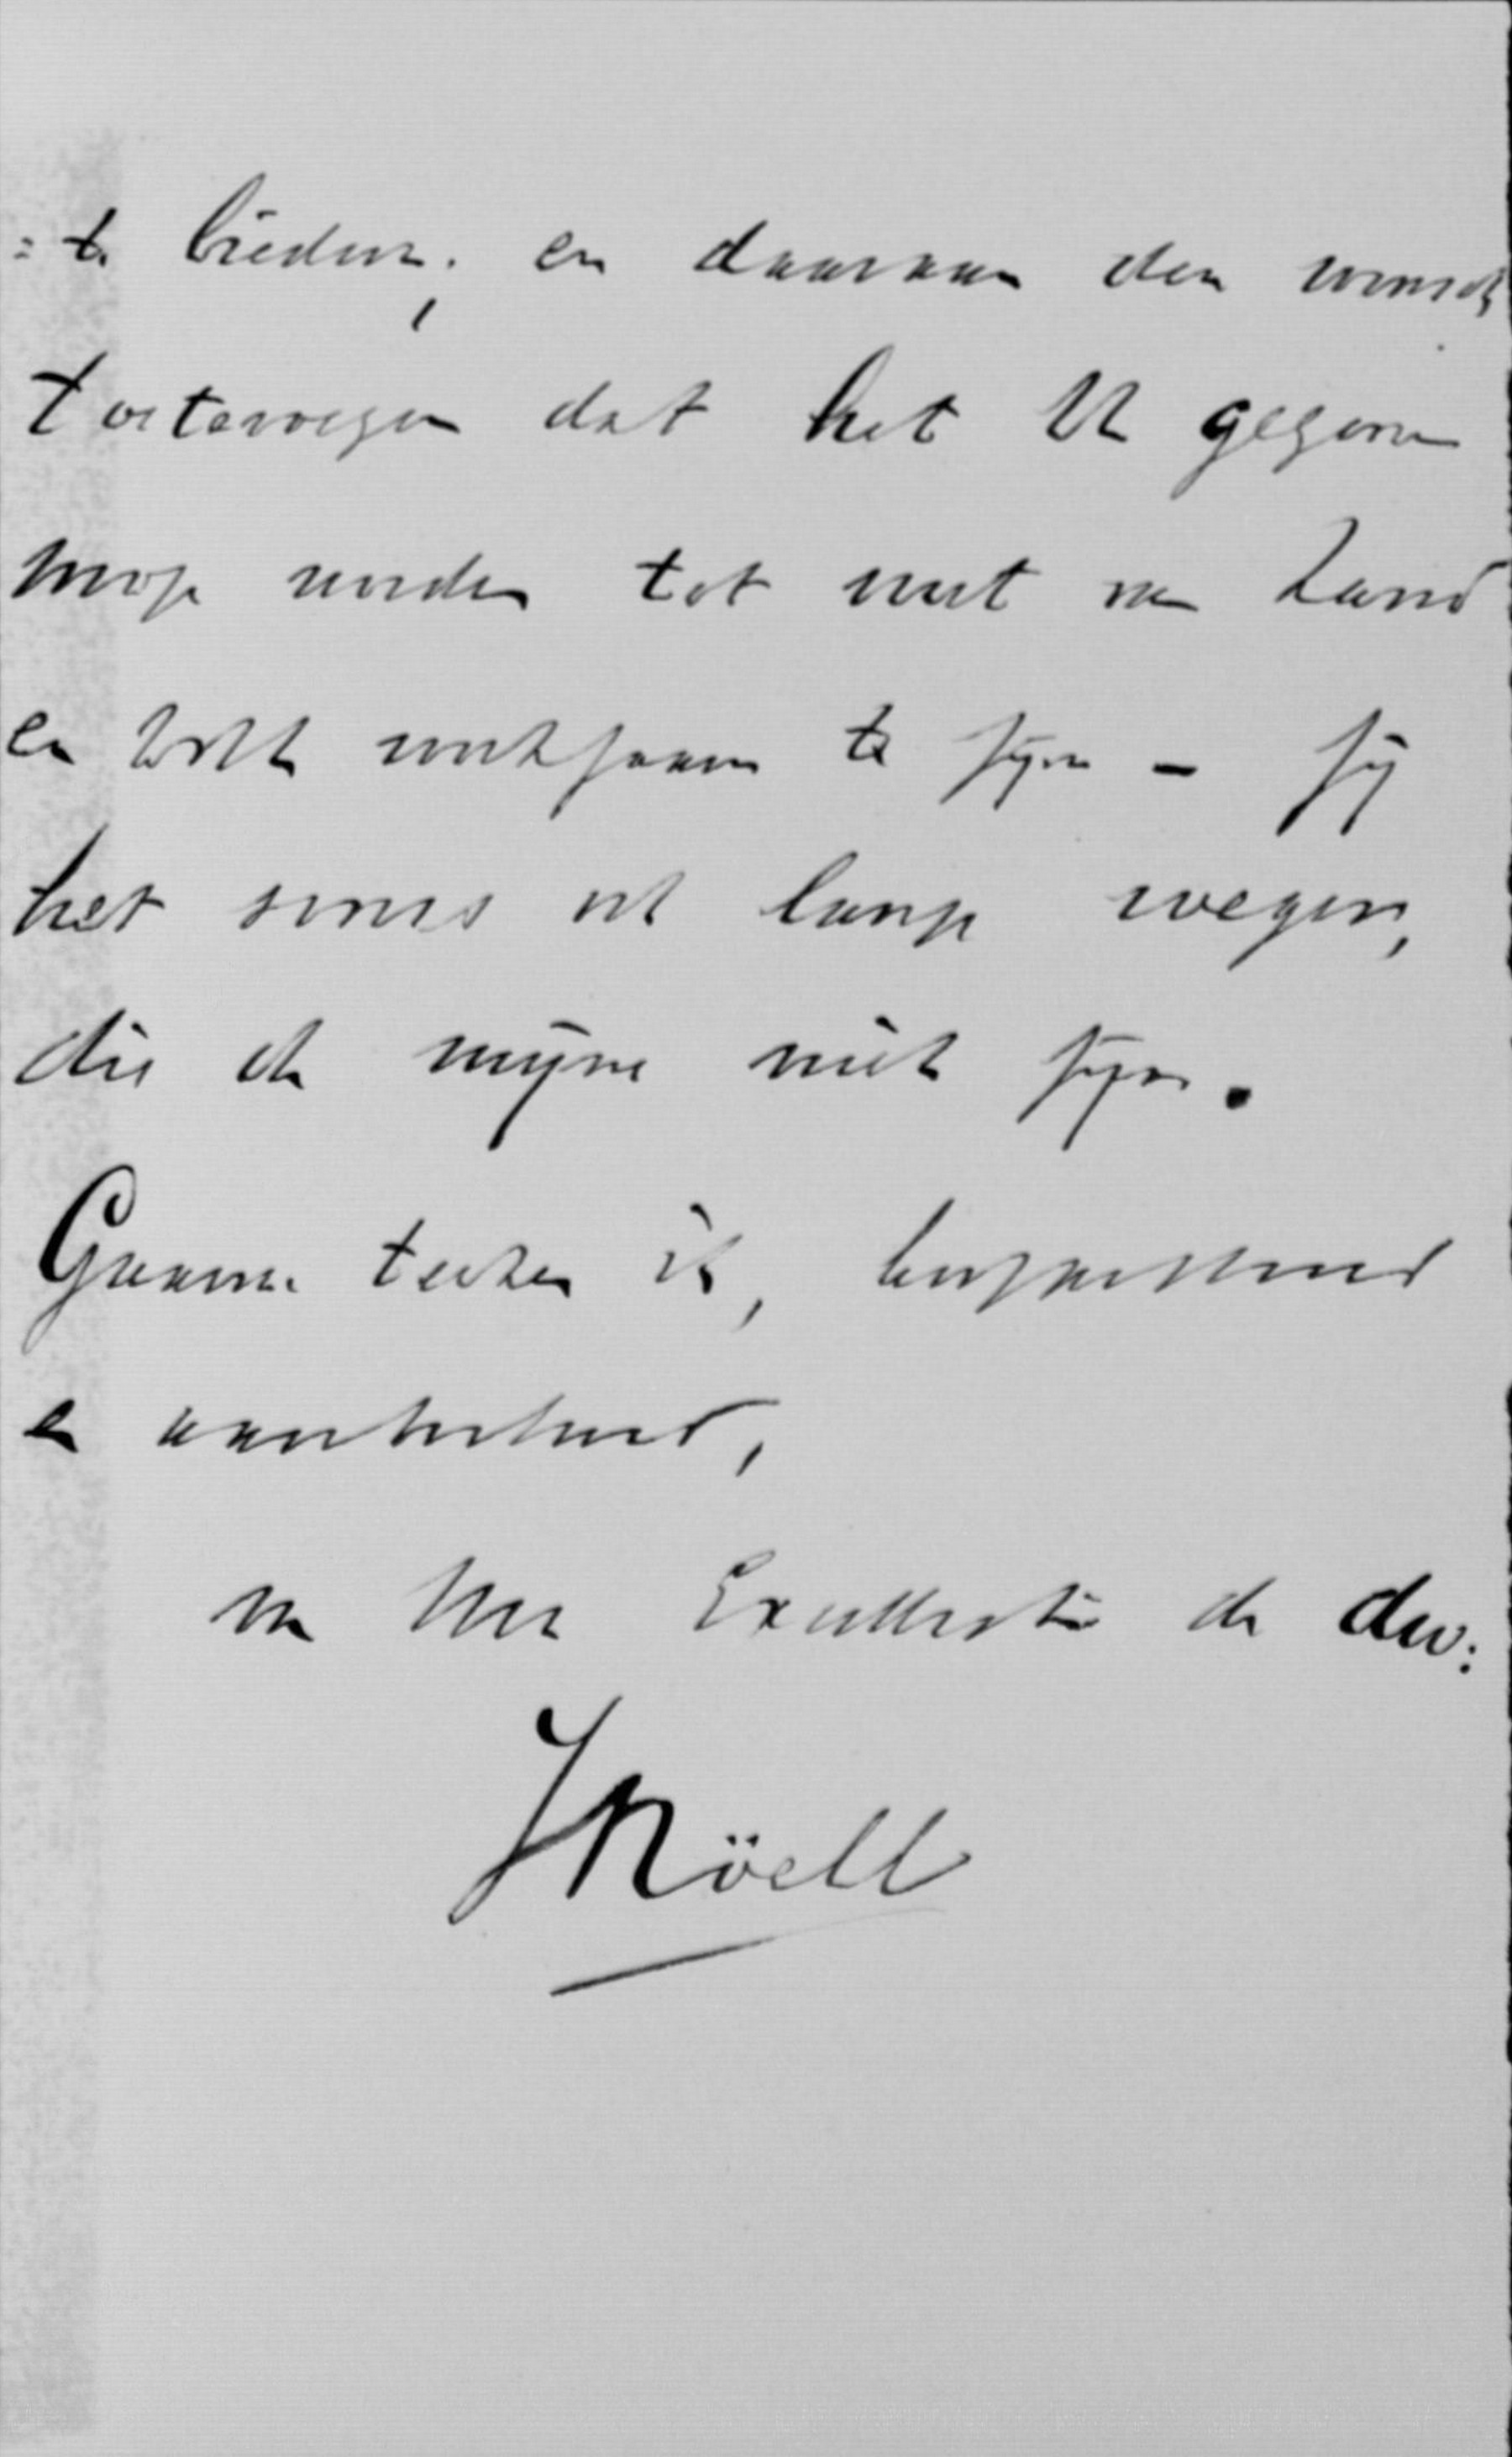 = te bieden; en daaraan den wensch
toetevoegen dat het U gegeven
moge worden tot nut van Land
en Volk werkzaam te zijn – zij
het soms ook langs wegen,
die de mijne niet zijn.
Gaarne teeken ik, hoogachtend
en aanbevelend,
van Uwe Excellentie de dw:
JRöell